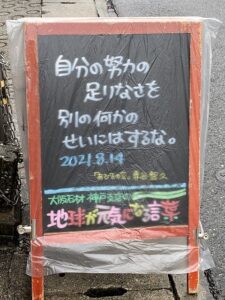 自分の努力の
足りなさを
別の何かの
せいにはするな。
2021.8.14
大阪石材 神戸支店の
地球が元気になる言葉